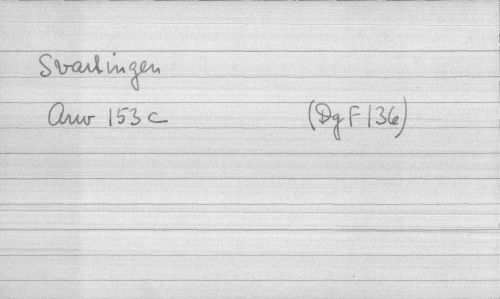 Svartingen
Arw 153 c (DgF 136)